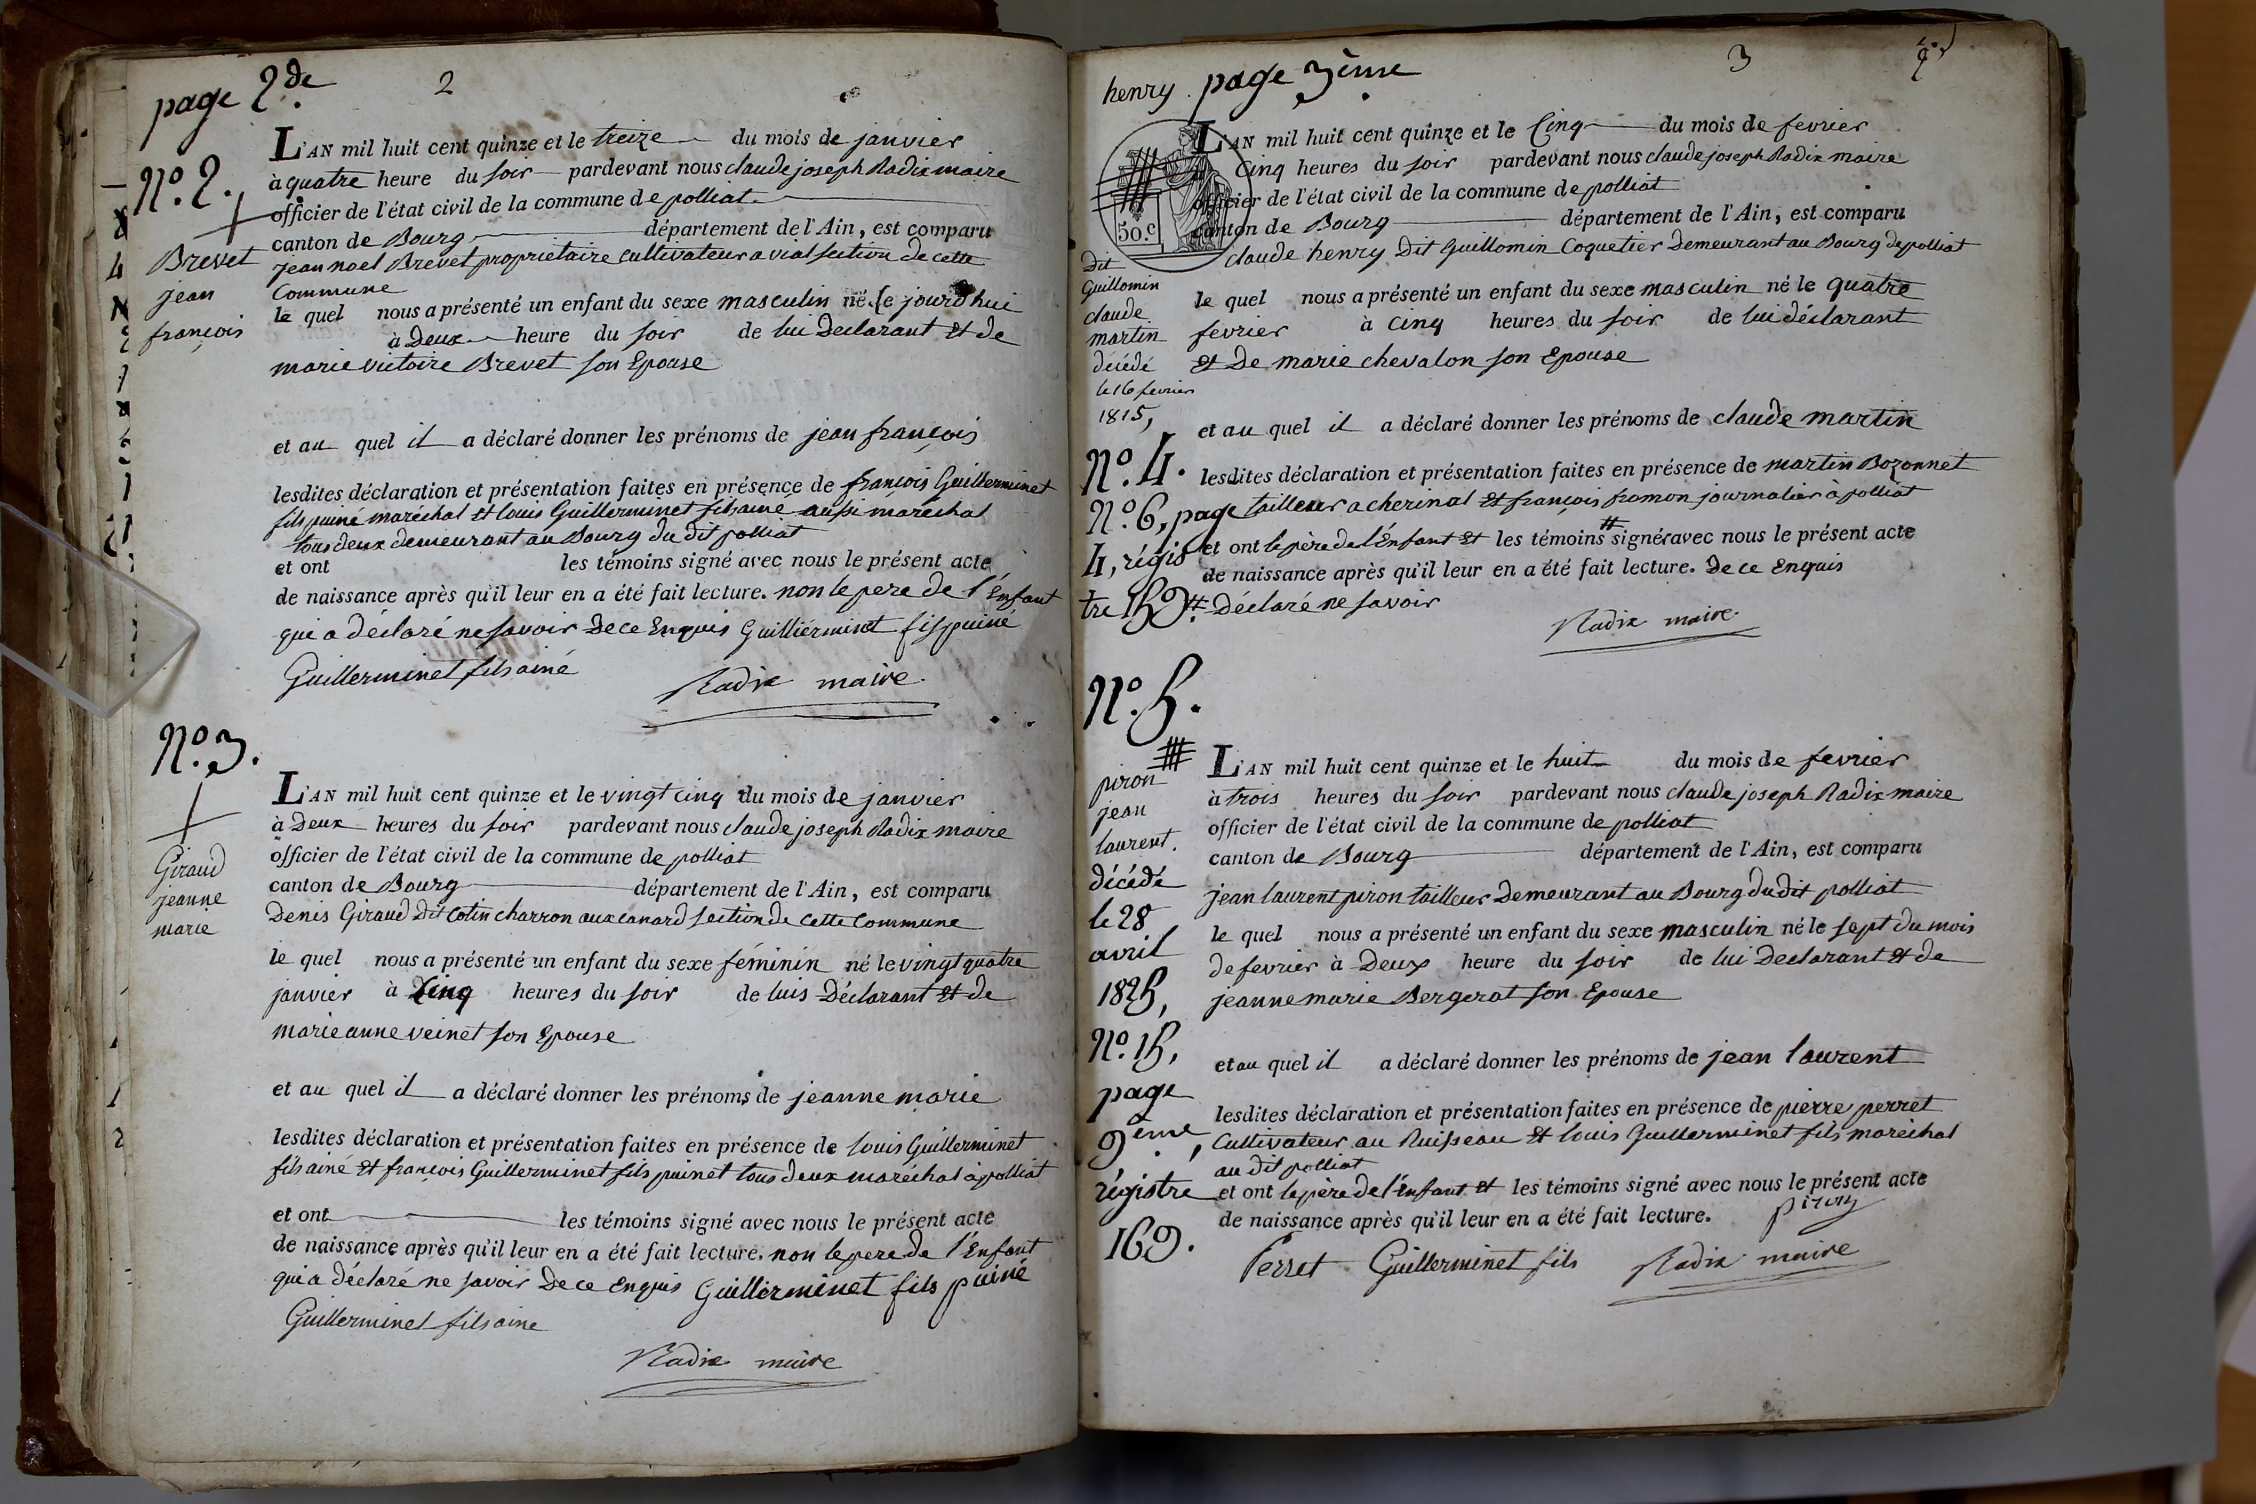 page 2de.
2
N° 2.
Brevet
jean
françois
L'AN mil huit cent quinze et le treize du mois de janvier
à quatre heure du soir pardevant nous claude joseph Radix maire
officier de l'état civil de la commune de polliat
canton de Bourg département de l'Ain, est comparu
jean noel Brevet proprietaire cultivateur a vial section de cette
Commune
le quel nous a présenté un enfant du sexe masculin né le jourd'hui
à Deux heure du soir de lui Declarant et de
marie victoire Brevet son Epouse
et au quel il a déclaré donner les prénoms de jean françois
lesdites déclaration et présentation faites en présence de françois Guillerminet
fils puiné maréchal et louis Guillerminet fils ainé aussi maréchal
tous deux demeurant au Bourg du dit polliat
et ont les témoins signé avec nous le présent acte
de naissance après qu'il leur en a été fait lecture. non le pere de l'Enfant
qui a déclaré ne savoir De ce Enquis Guilliérminet fils puiné
Guillerminet fils ainé
Radix maire
N° 3.
Giraud
jeanne
marie
L'AN mil huit cent quinze et le vingt cinq du mois de janvier
à Deux heures du soir pardevant nous claude joseph Radix maire
officier de l'état civil de la commune de polliat
canton de Bourg département de l'Ain, est comparu
Denis Giraud Dit Colin charron aux canard section de cette Commune
le quel nous a présenté un enfant du sexe féminin né le vingt quatre
janvier à Cinq heures du soir de luis Déclarant et de
marie anne veinet son Epouse
et au quel il a déclaré donner les prénoms de jeanne marie
lesdites déclaration et présentation faites en présence de louis Guillerminet
fils ainé et françois Guillerminet fils puinet tous deux maréchal à polliat
et ont les témoins signé avec nous le présent acte
de naissance après qu'il leur en a été fait lecture. non le pere de l'Enfant
qui a déclaré ne savoir De ce Enquis Guillerminet fils puiné
Guillerminet fils aine
Radix maire
henry page 3ème.
3
50.c
Dit
Guillomin
claude
martin
décédé
le 16 fevrier
1815,
N° 4.
N° 6, page
4, régis
tre 159.
L'AN mil huit cent quinze et le Cinq du mois de fevrier
à Cinq heures du soir pardevant nous claude joseph Radix maire
officier de l'état civil de la commune de polliat
canton de Bourg département de l'Ain, est comparu
claude henry Dit Guillomin Coquetier Demeurant au Bourg de polliat
le quel nous a présenté un enfant du sexe masculin né le quatre
février à cinq heures du soir de lui déclarant
et De marie chevalon son Epouse
et au quel il a déclaré donner les prénoms de claude martin
lesdites déclaration et présentation faites en présence de martin Bozonnet
tailleur a cherinal et françois framon journalier à polliat
et ont le père de l'Enfant et les témoins # signé avec nous le présent acte
de naissance après qu'il leur en a été fait lecture. De ce Enquis
# Déclaré ne savoir
Radix maire
N° 5.
piron
jean
laurent.
décédé
le 28
avril
1825,
N° 15,
page
9ème,
régistre
169.
L'AN mil huit cent quinze et le huit du mois de fevrier
à trois heures du soir pardevant nous claude joseph Radix maire
officier de l'état civil de la commune de polliat
canton de Bourg département de l'Ain, est comparu
jean laurent piron tailleur Demeurant au Bourg du dit polliat
le quel nous a présenté un enfant du sexe masculin né le sept du mois
de fevrier à Deux heure du soir de lui Declarant et de
jeanne marie Bergerat son Epouse
et au quel il a déclaré donner les prénoms de jean laurent
lesdites déclaration et présentation faites en présence de pierre perret
Cultivateur au Ruisseau et louis Guillerminet fils maréchal
au dit polliat
et ont le père de l'Enfant et les témoins signé avec nous le présent acte
de naissance après qu'il leur en a été fait lecture. piron
Perret Guillerminet fils Radix maire